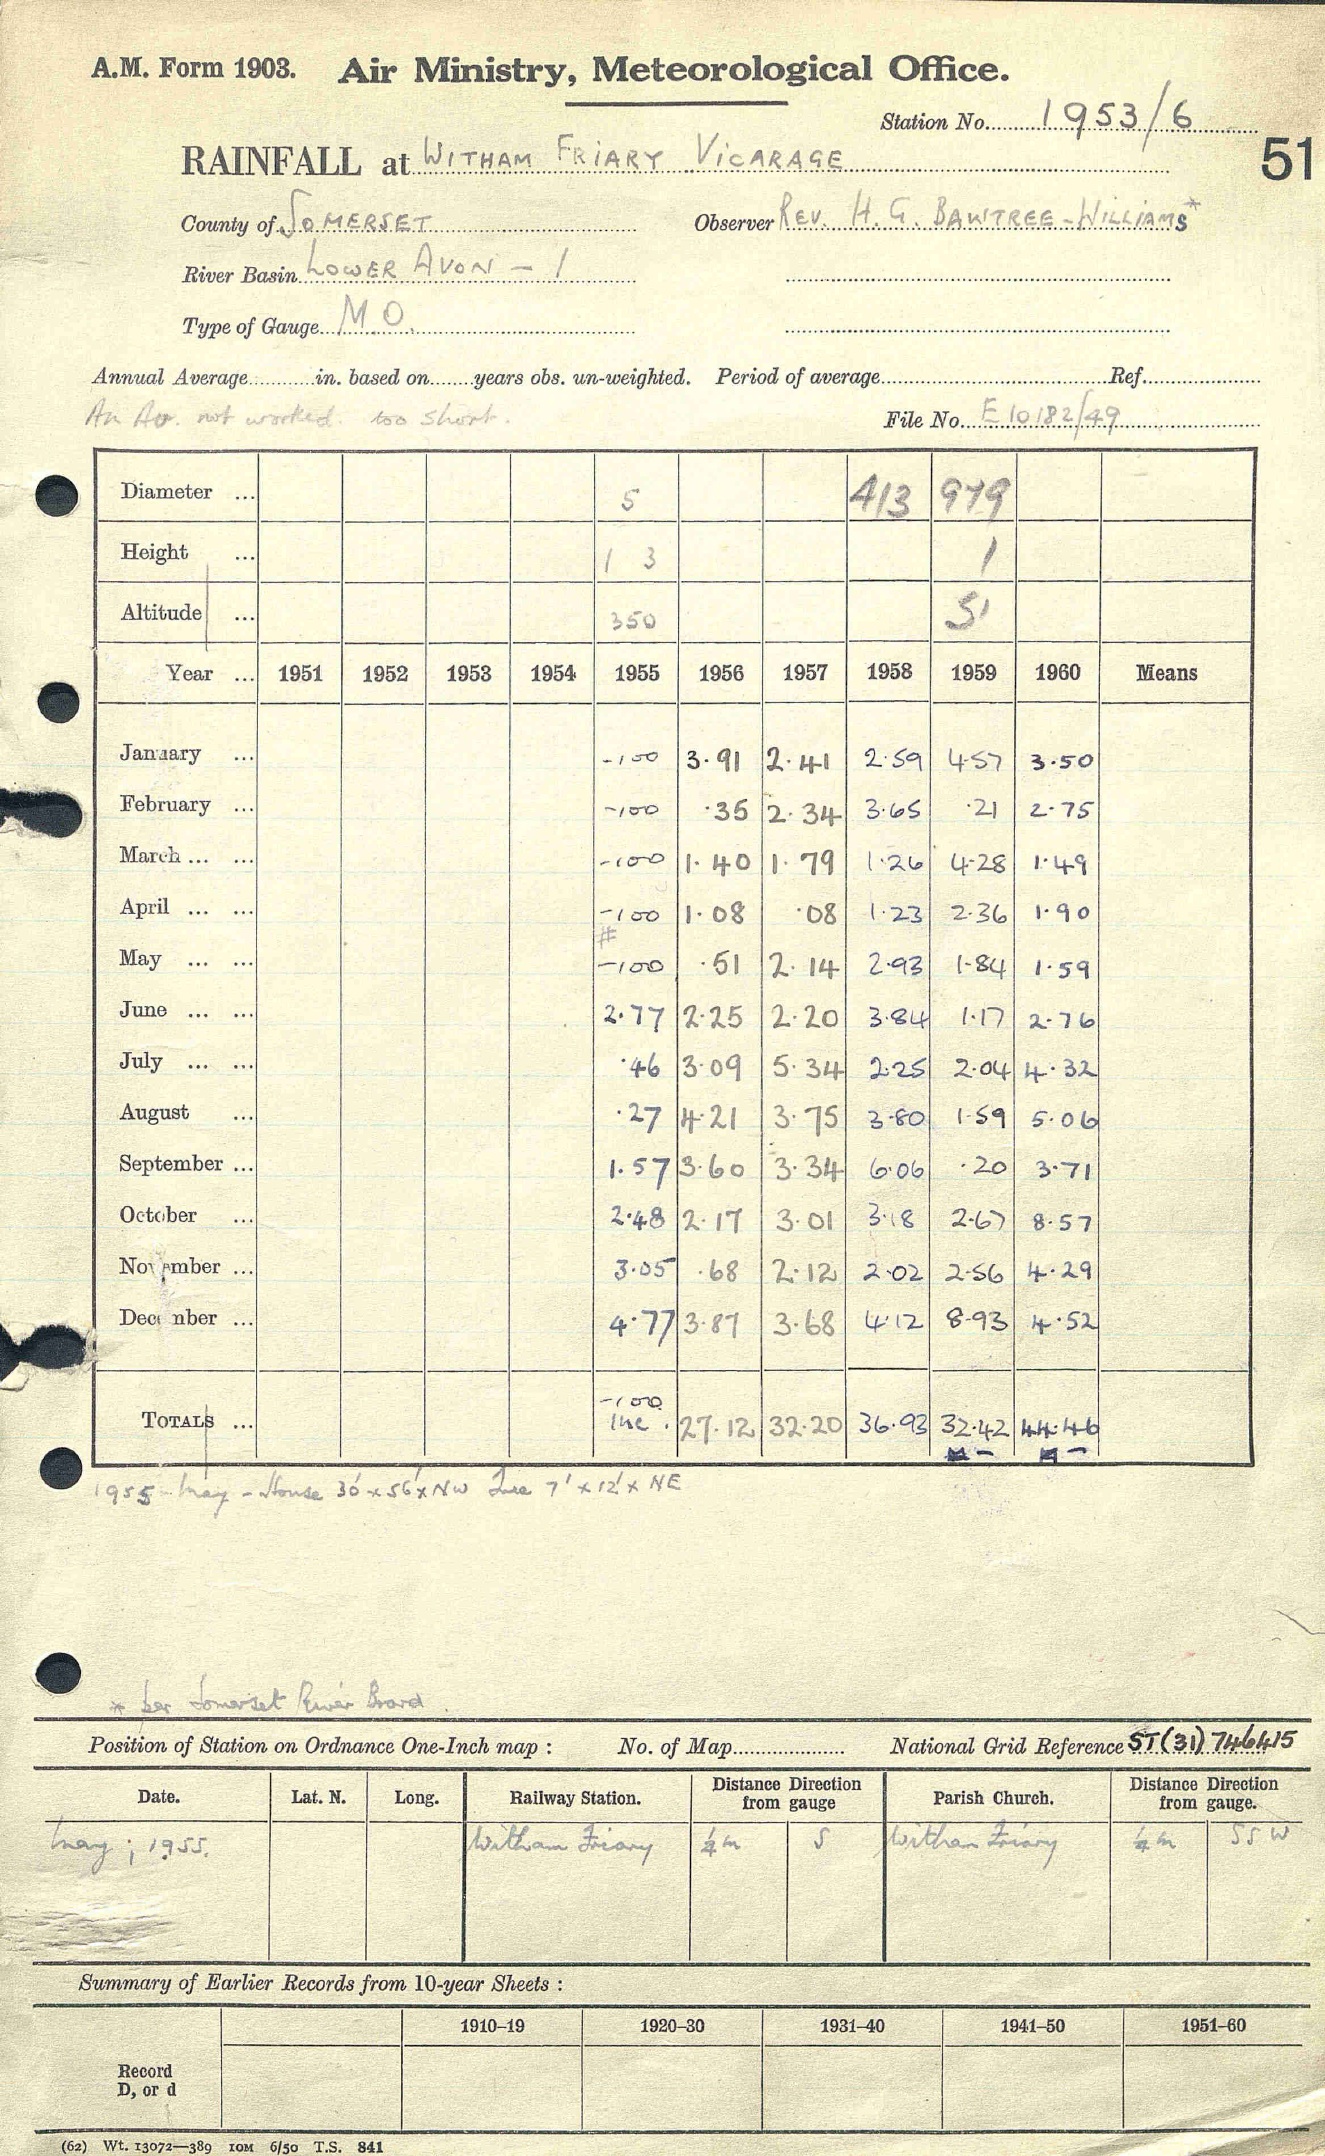 A.M. Form 1903. Air Ministry, Meteorological Office.
Station No. 1953/6
RAINFALL at WITHAM FRIARY VICARAGE
51
County of SOMERSET Observer REV. H. G. BAWTREE-WILLIAMS*
River Basin LOWER AVON - 1
Type of Gauge M.O.
Annual Average in. based on years obs. un-weighted. Period of average Ref.
An Av. not worked. too short. File No. E10182/49
Diameter ... 5 413 979
Height ... 1 3 1
Altitude ... 350 51
Year ... 1951 1952 1953 1954 1955 1956 1957 1958 1959 1960 Means
January ... -100 3.91 2.41 2.59 4.57 3.50
February ... -100 .35 2.34 3.65 .21 2.75
March ... ... -100 1.40 1.79 1.26 4.28 1.49
April ... ... -100 1.08 .08 1.23 2.36 1.90
#
May ... ... -100 .51 2.14 2.93 1.84 1.59
June ... ... 2.77 2.25 2.20 3.84 1.17 2.76
July ... ... .46 3.09 5.34 2.25 2.04 4.32
August ... .27 4.21 3.75 3.80 1.59 5.06
September ... 1.57 3.60 3.34 6.06 .20 3.71
October ... 2.48 2.17 3.01 3.18 2.67 8.57
November ... 3.05 .68 2.12 2.02 2.56 4.29
December ... 4.77 3.87 3.68 4.12 8.93 4.52
-100
TOTALS ... Inc. 27.12 32.20 36.93 32.42 44.46
1955 - May - House 30' x 56' x NW Tree 7' x 12' x NE
* per Somerset River Board
Position of Station on Ordnance One-Inch map : No. of Map National Grid Reference ST(31)746415
Date. Lat. N. Long. Railway Station. Distance Direction from gauge Parish Church. Distance Direction from gauge.
May ; 1955. Witham Friary ¼m S Witham Friary ¼m SSW
Summary of Earlier Records from 10-year Sheets :
1910–19 1920–30 1931–40 1941–50 1951–60
Record
D, or d
(62) Wt. 13072—389 10M 6/50 T.S. 841